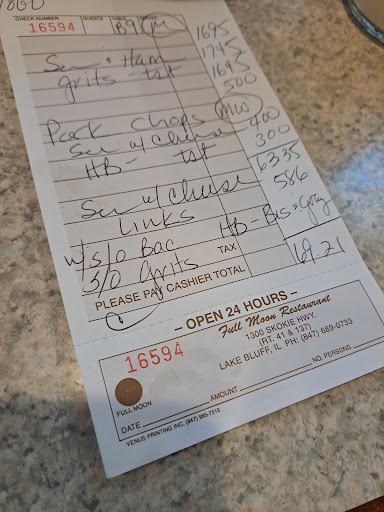 CHECK NUMBER GUESTS TABLE
16594 B9
Scr + Ham 1695
grits - tst 1745
1695
500
Pork Chops MW
Scr w/Cheese 400
HB - tst 300
6335
Scr w/Cheese 586
Links
w/s/o Bac HB - Bis + Gravy
s/o Grits TAX
PLEASE PAY CASHIER TOTAL 69.21
– OPEN 24 HOURS –
Full Moon Restaurant
16594 1300 SKOKIE HWY.
(RT. 41 & 137)
LAKE BLUFF, IL PH: (847) 689-0733
FULL MOON
DATE AMOUNT NO. PERSONS
VENUS PRINTING INC. (847) 985-7510